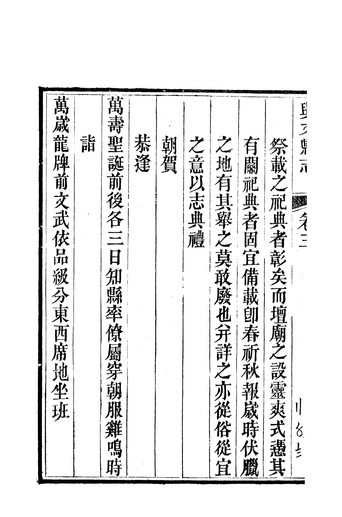 興文縣志
卷三
祭載之祀典者彰矣而壇廟之設靈爽式憑其
有關祀典者固宜備載卽春祈秋報歲時伏臘
之地有其舉之莫敢廢也幷詳之亦從俗從宜
之意以志典禮
朝賀
恭逢
萬壽聖誕前後各三日知縣率僚屬穿朝服雞鳴時
詣
萬歲龍牌前文武依品級分東西席地坐班